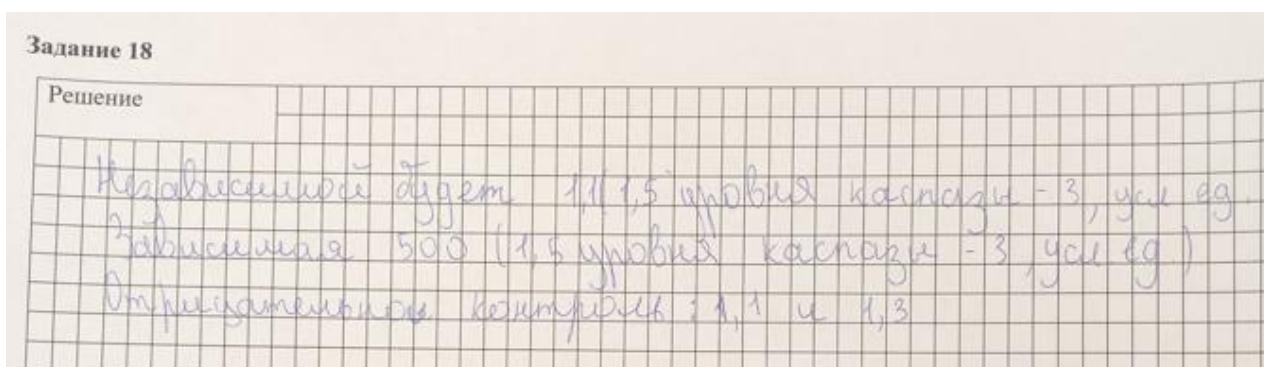 Задание 18
Решение
Независимой будет 1,1(1,5 уровня каспазы - 3, усл ед.
Зависимая 500 (1,5 уровня каспазы - 3, усл ед.)
Отрицательной контроль: 1,1 и 1,3